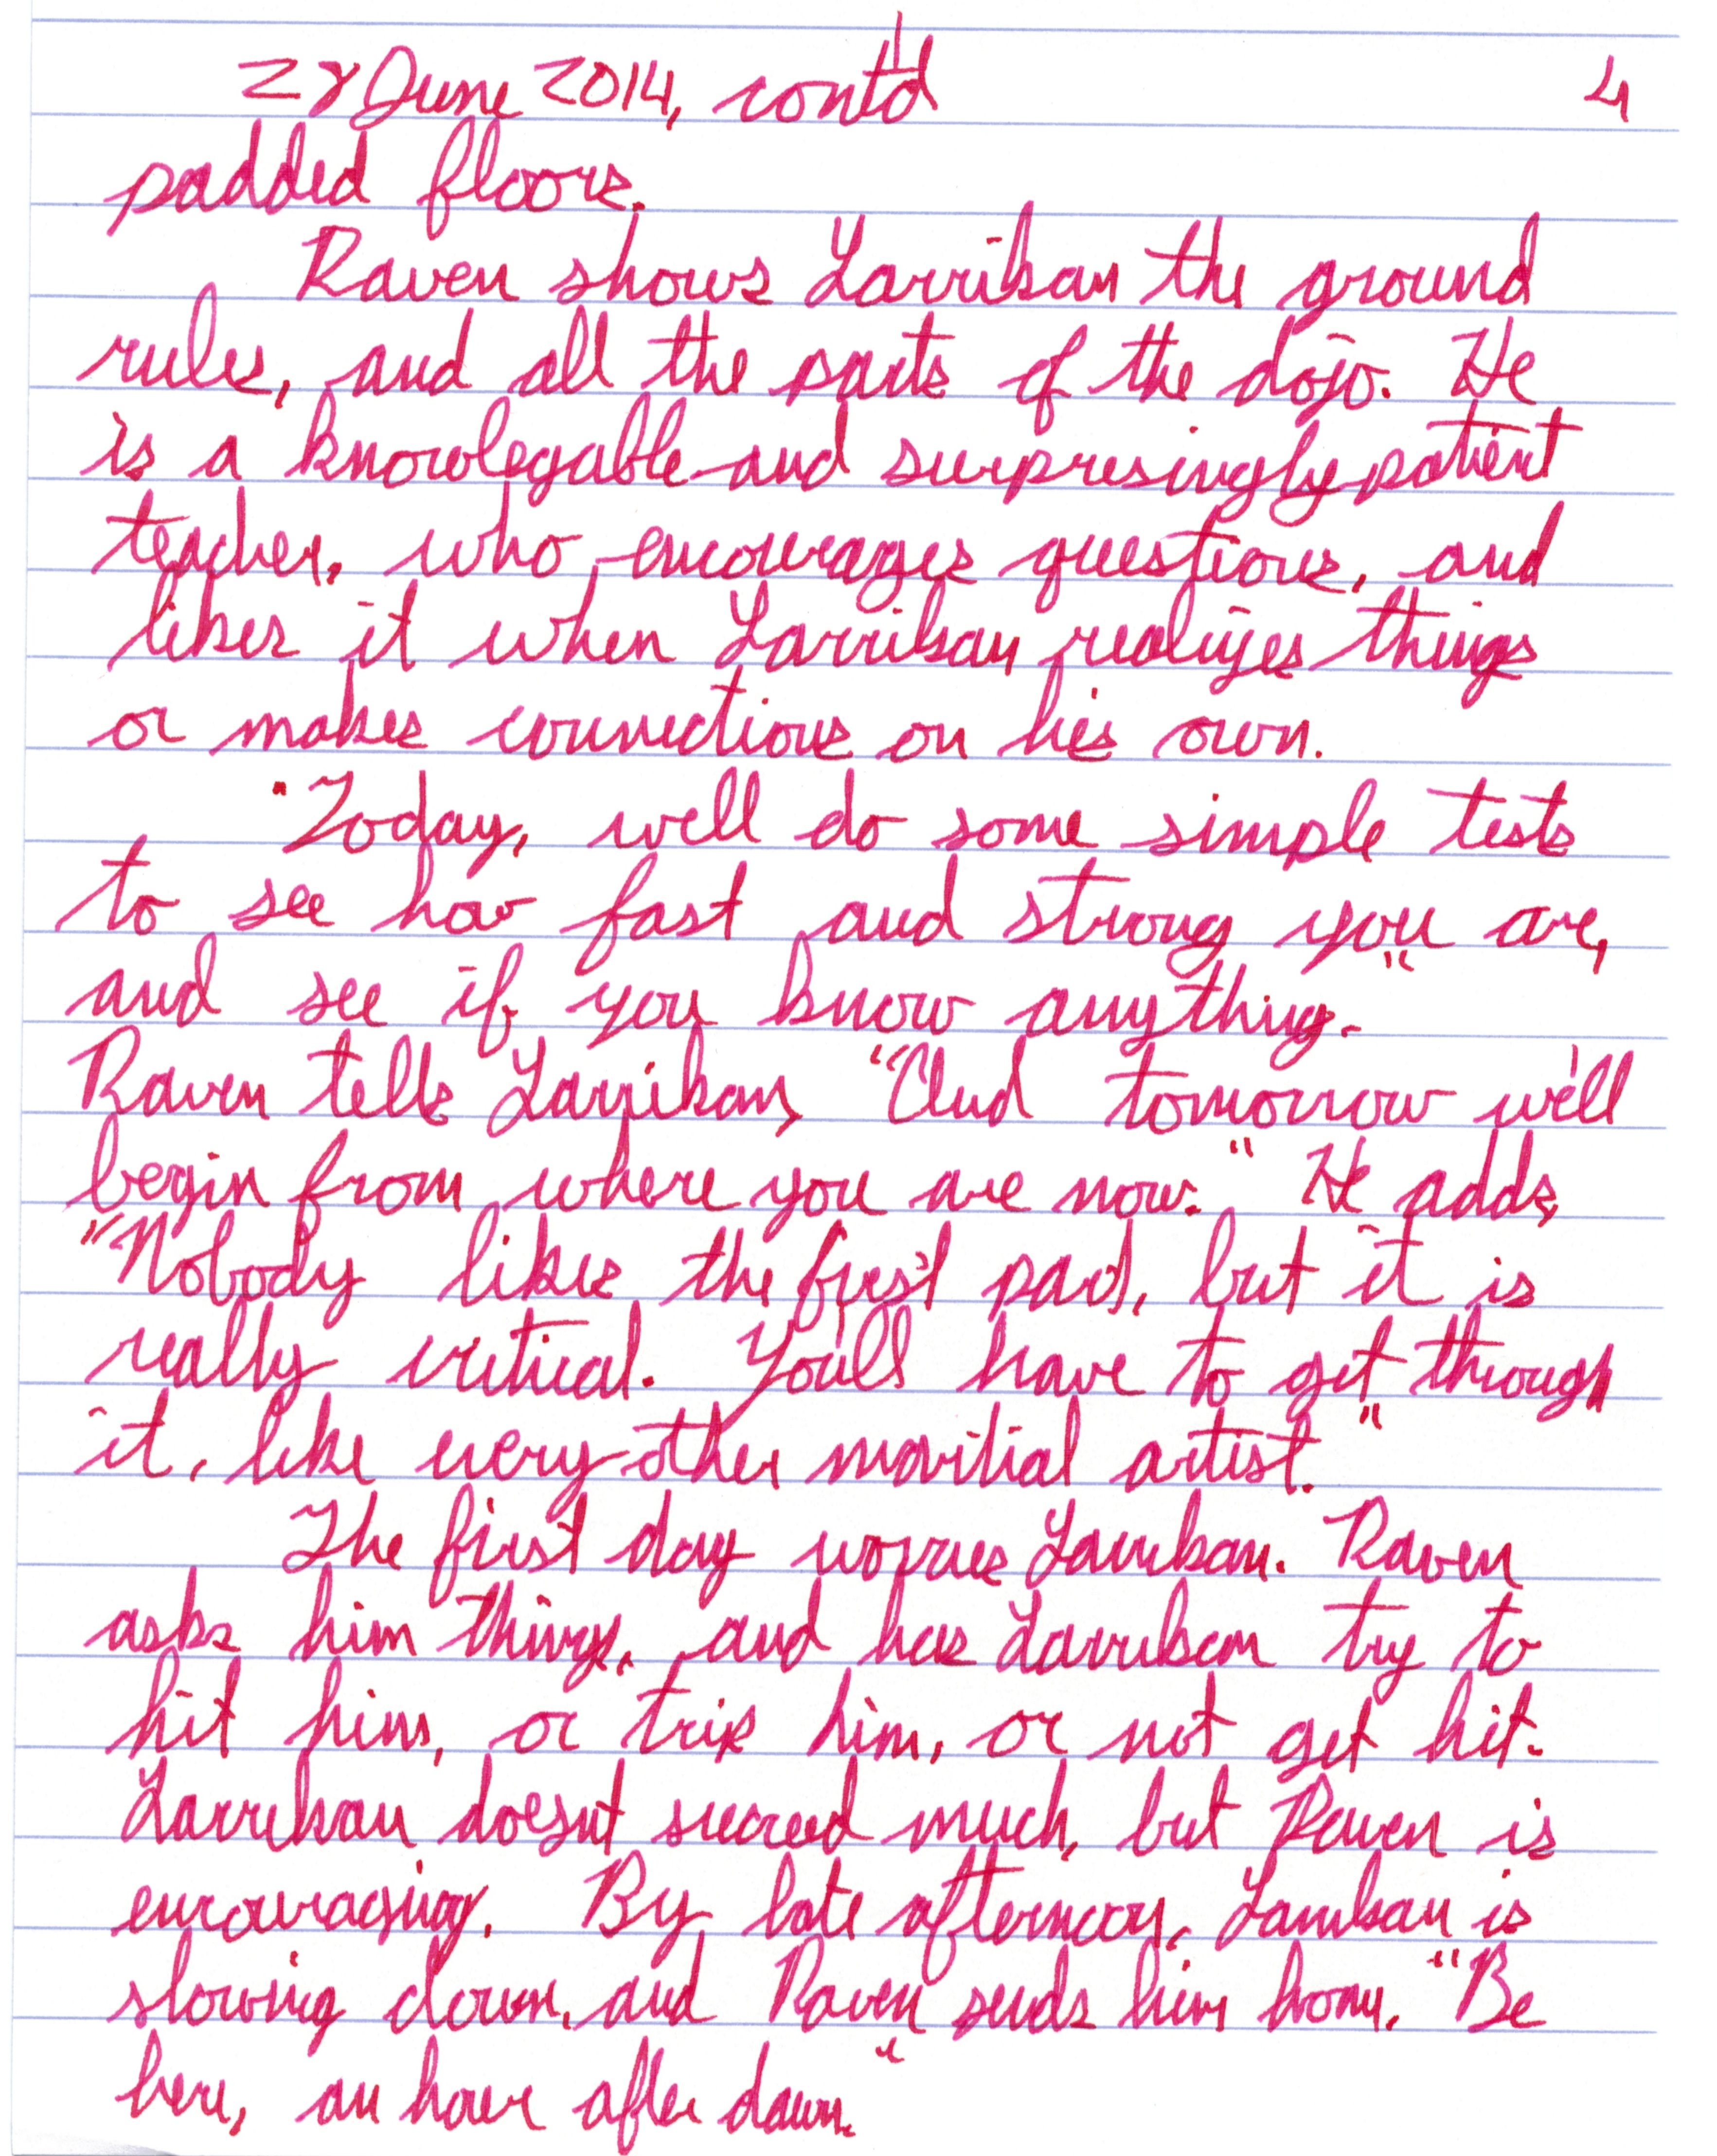 28 June 2014, cont'd 4
padded floors.
Raven shows Larrikan the ground
rules, and all the parts of the dojo. He
is a knowlegable and surpresingly patient
teacher, who encourages questions, and
likes it when Larrikan realizes things
or makes connections on his own.
"Today, we'll do some simple tests
to see how fast and strong you are,
and see if you know anything."
Raven tells Larrikan, "And tomorrow we'll
begin from where you are now." He adds,
"Nobody likes the first part, but it is
really critical. You'll have to get through
it, like every other martial artist."
The first day worries Larrikan. Raven
asks him things, and has Larrikan try to
hit him, or trip him, or not get hit.
Larrikan doesn't succeed much, but Raven is
encouraging. By late afternoon, Larrikan is
slowing down, and Raven sends him home, "Be
here, an hour after dawn."